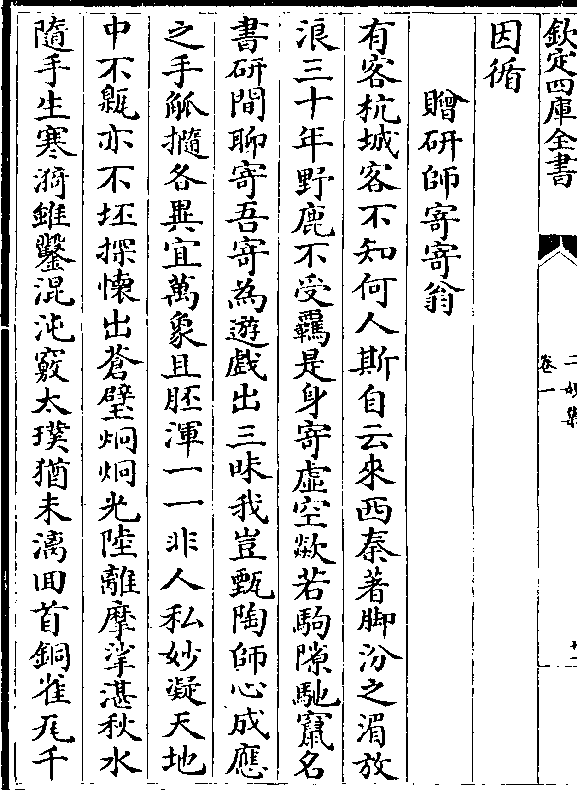 欽定四庫全書
二妙集
卷一
十一
因循
贈研師寄寄翁
有客杭城客不知何人斯自云來西秦著脚汾之湄放
浪三十年野鹿不受羈是身寄虛空歘若駒隙馳竄名
書研間聊寄吾寄為遊戲出三昧我豈甄陶師心成應
之手觚橢各異宜萬象且胚渾一一非人私妙凝天地
中不甈亦不坯探懷出蒼璧炯炯光陸離摩挲湛秋水
隨手生寒漪錐鑿混沌竅太璞猶未漓回首銅雀瓦千